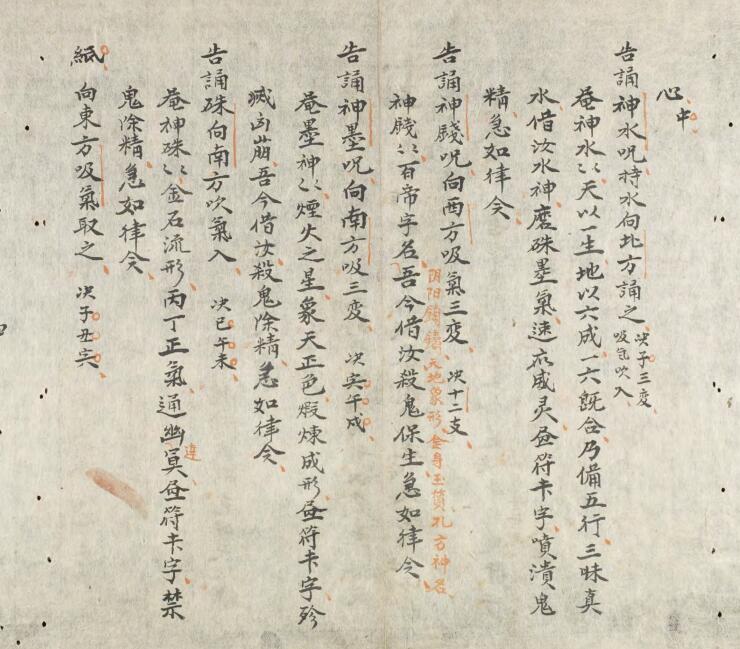 心中
告誦神水呪持水向北方誦之 决子三変
吸気吹入
菴神水〻天以一生地以六成一六既合乃備五行三昧真
水借汝水神磨硃墨氣速応威灵昼符卡字噴潰鬼
精急如律令
告誦神牋呪向西方吸氣三変 决十二支
阴阳 天地象形金身玉質孔方神名
神牋〻百帝字名吾今借汝殺鬼保生急如律令
告誦神墨呪向南方吸三変 决寅午戍
菴墨神〻煙火之星象天正色煅煉成形昼符卡字殄
滅凶崩吾今借汝殺鬼除精急如律令
告誦硃向南方吹氣入 决巳午未
違
菴神硃〻金石流形丙丁正氣通幽冥昼符卡字禁
鬼除精急如律令
紙 向東方吸氣取之 决子丑寅